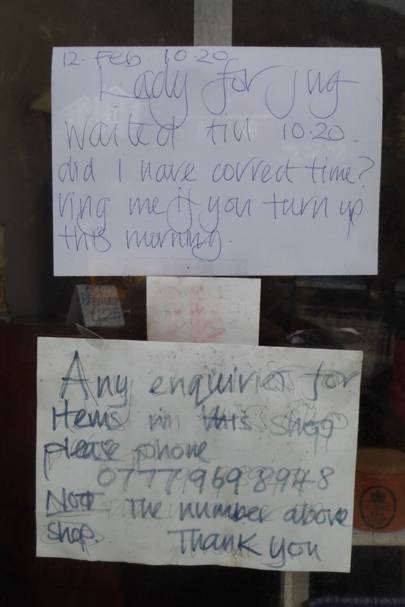 12. Feb. 10.20.
Lady for jug
waited till 10.20.
did I have correct time?
ring me if you turn up
this morning.
Any enquiries for
items in this shop
please phone
07779698948
NOT the number above
shop. Thank you